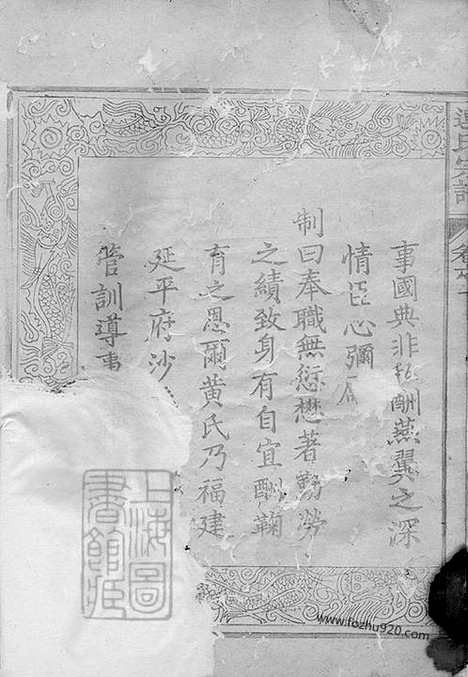 事國典非輕酬燕翼之深
情臣心彌
制曰奉職無愆懋著勤勞
之績致身有自宜酬鞠
育之恩爾黃氏乃福建
延平府沙
管訓導事
上海圖
書館藏
www.fozhu920.com